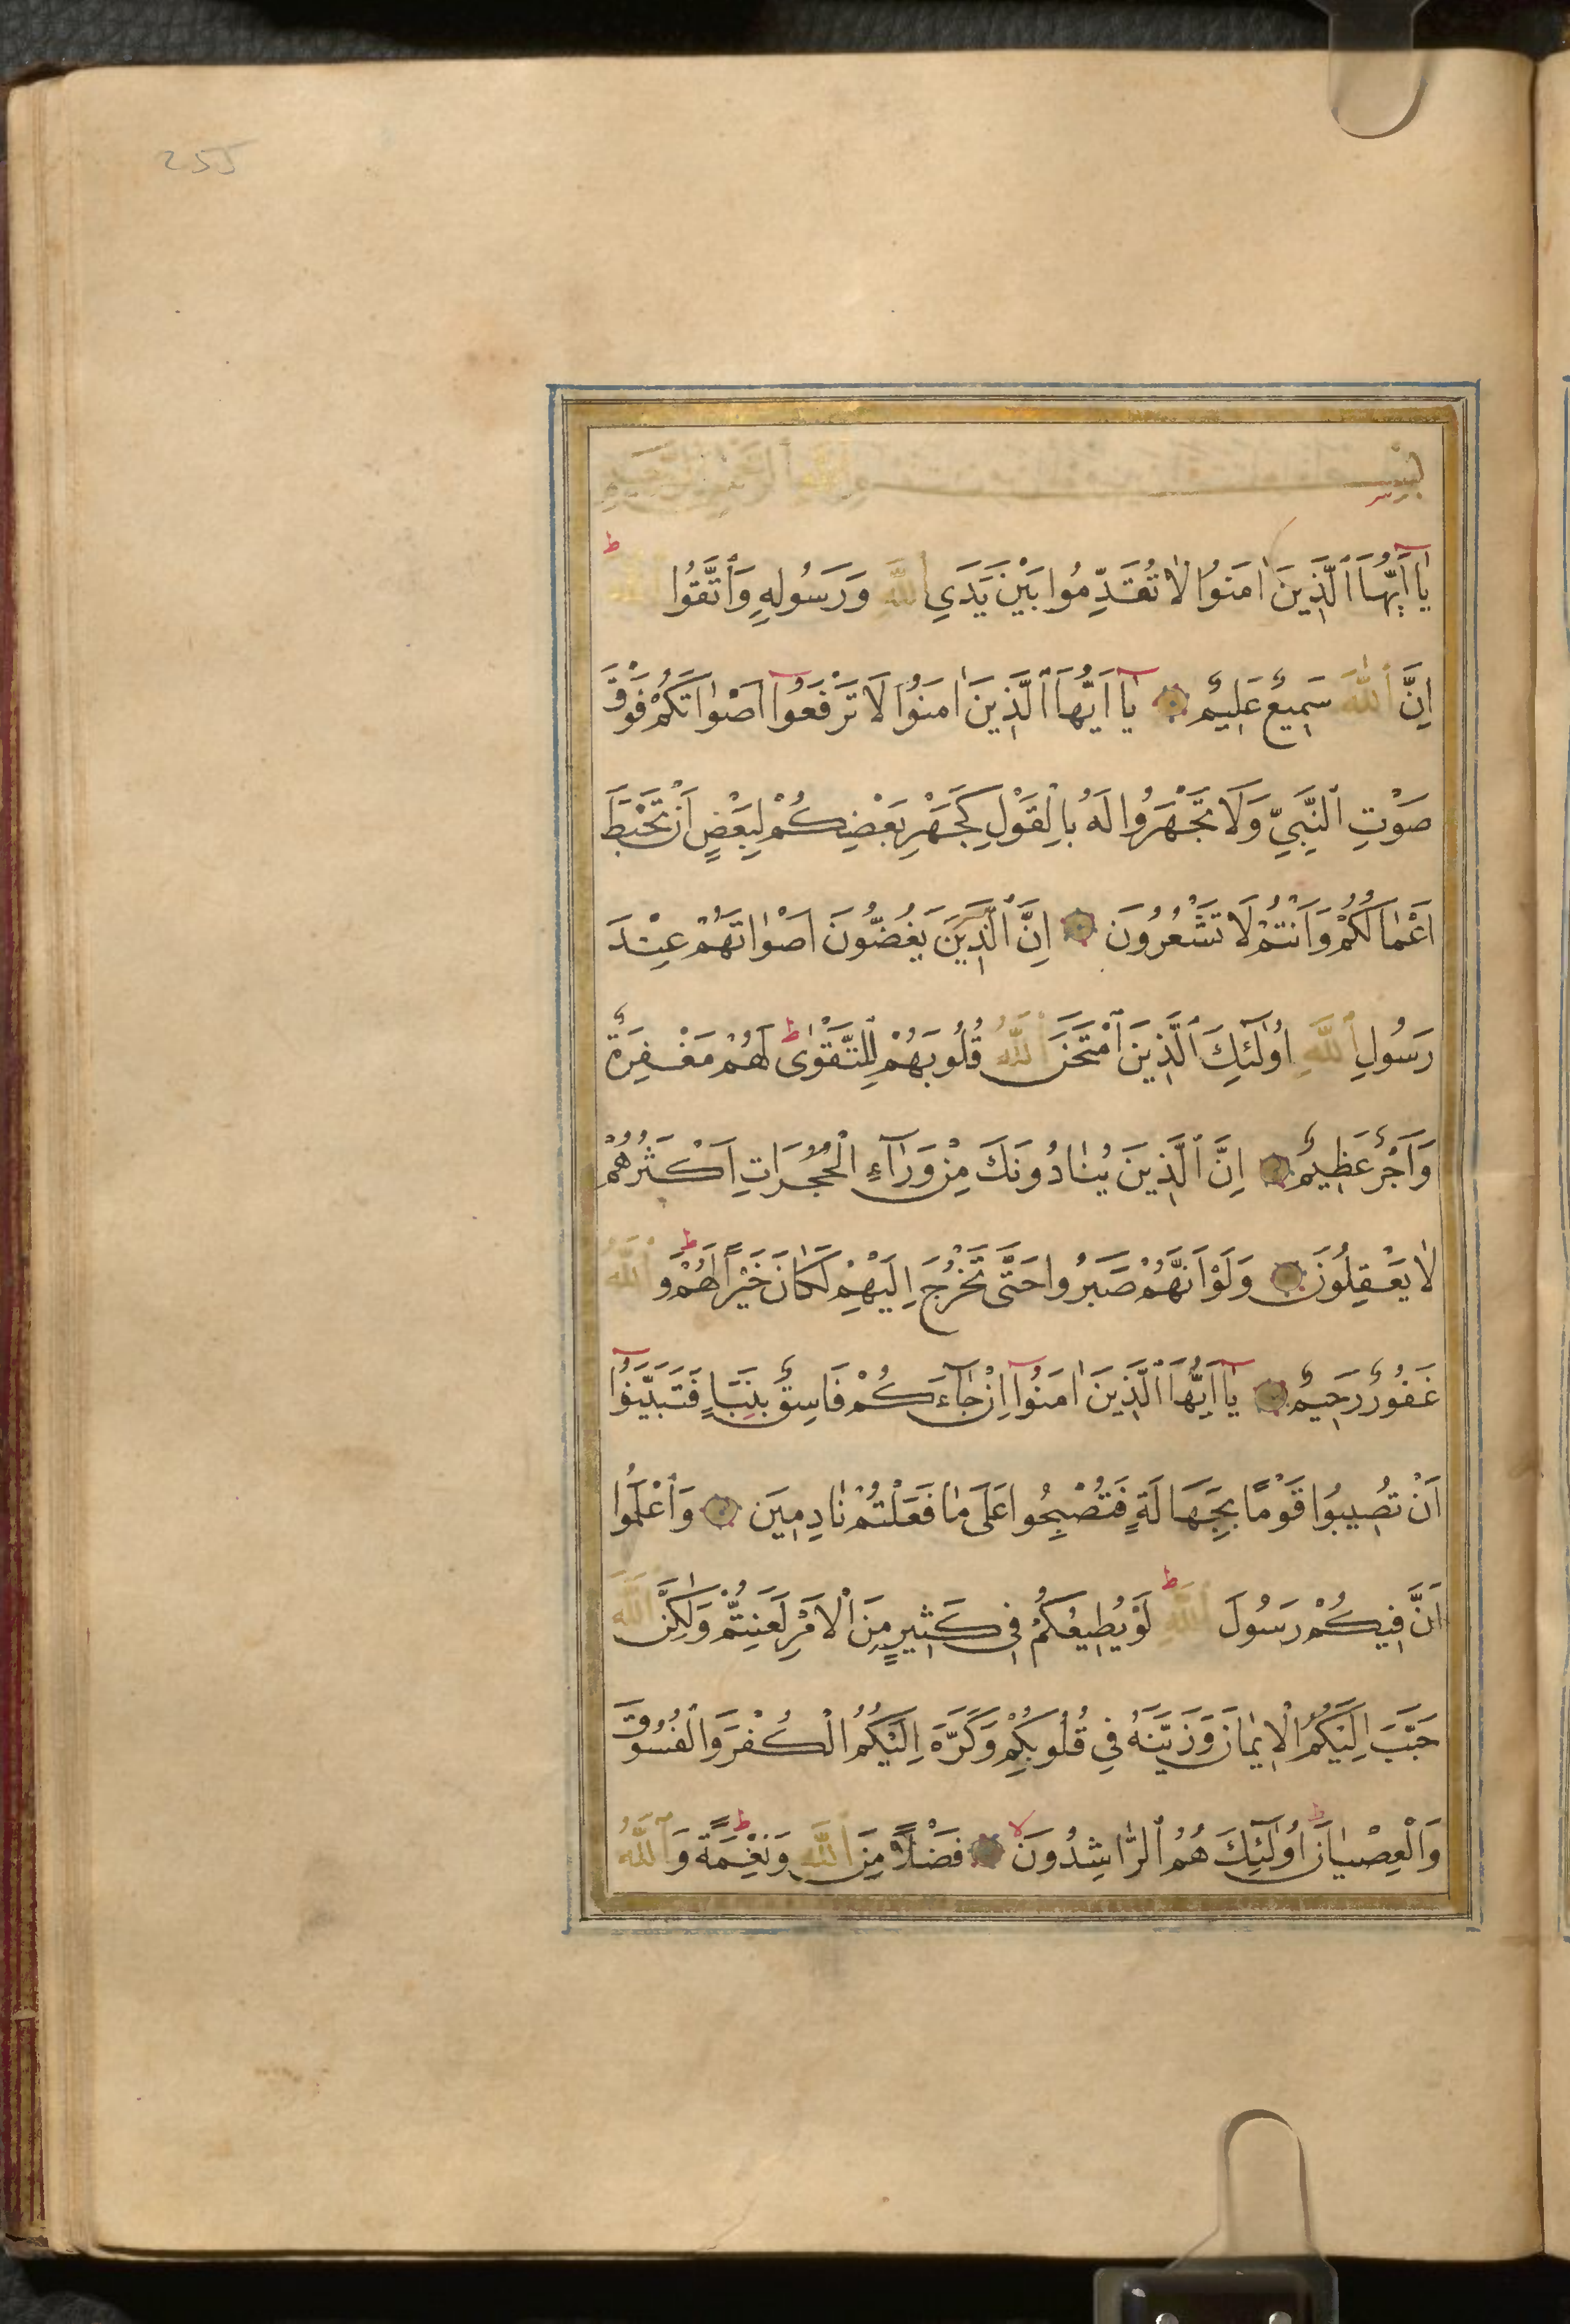 255
بِسْمِ اللّٰهِ الرَّحْمٰنِ الرَّحِيمِ
يَٓا اَيُّهَا ٱلَّذِينَ اٰمَنُوا لَا تُقَدِّمُوا بَيْنَ يَدَيِ ٱللّٰهِ وَرَسُولِهِ وَٱتَّقُوا ٱللّٰهَ ط
اِنَّ ٱللّٰهَ سَمِيعٌ عَلِيمٌ ۝ يَٓا اَيُّهَا ٱلَّذِينَ اٰمَنُوا لَا تَرْفَعُٓوا اَصْوَاتَكُمْ فَوْقَ
صَوْتِ ٱلنَّبِيِّ وَلَا تَجْهَرُوا لَهُ بِالْقَوْلِ كَجَهْرِ بَعْضِكُمْ لِبَعْضٍ اَنْ تَحْبَطَ
اَعْمَالُكُمْ وَاَنْتُمْ لَا تَشْعُرُونَ ۝ اِنَّ ٱلَّذِينَ يَغُضُّونَ اَصْوَاتَهُمْ عِنْدَ
رَسُولِ ٱللّٰهِ اُولٰٓئِكَ ٱلَّذِينَ ٱمْتَحَنَ ٱللّٰهُ قُلُوبَهُمْ لِلتَّقْوٰى ط لَهُمْ مَغْفِرَةٌ
وَاَجْرٌ عَظِيمٌ ۝ اِنَّ ٱلَّذِينَ يُنَادُونَكَ مِنْ وَرَٓاءِ الْحُجُرَاتِ اَكْثَرُهُمْ
لَا يَعْقِلُونَ ۝ وَلَوْ اَنَّهُمْ صَبَرُوا حَتّٰى تَخْرُجَ اِلَيْهِمْ لَكَانَ خَيْرًا لَهُمْ ط وَٱللّٰهُ
غَفُورٌ رَحِيمٌ ۝ يَٓا اَيُّهَا ٱلَّذِينَ اٰمَنُٓوا اِنْ جَٓاءَكُمْ فَاسِقٌ بِنَبَإٍ فَتَبَيَّنُٓوا
اَنْ تُصِيبُوا قَوْمًا بِجَهَالَةٍ فَتُصْبِحُوا عَلَى مَا فَعَلْتُمْ نَادِمِينَ ۝ وَٱعْلَمُٓوا
اَنَّ فِيكُمْ رَسُولَ ٱللّٰهِ ط لَوْ يُطِيعُكُمْ فِي كَثِيرٍ مِنَ ٱلْاَمْرِ لَعَنِتُّمْ وَلٰكِنَّ ٱللّٰهَ
حَبَّبَ اِلَيْكُمُ الْاِيمَانَ وَزَيَّنَهُ فِي قُلُوبِكُمْ وَكَرَّهَ اِلَيْكُمُ الْكُفْرَ وَالْفُسُوقَ
وَالْعِصْيَانَ ط اُولٰٓئِكَ هُمُ ٱلرَّاشِدُونَ لا ۝ فَضْلًا مِنَ ٱللّٰهِ وَنِعْمَةً ط وَٱللّٰهُ